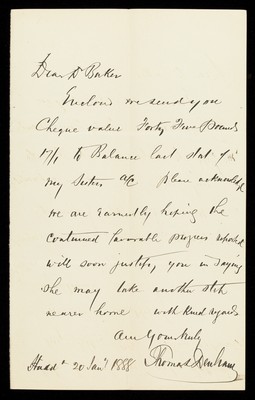 Dear Dr Baker
Enclosed we send you
Cheque value Forty Five Pounds
17/1 to Balance last stat of
my Sisters a/c Please acknowledge
we are Earnestly hoping the
continued favorable progress reported
will soon justify you in saying
she may take another step
nearer home with kind regards
are Yours truly
Hudd 20 Jany 1888 Thomas Denham